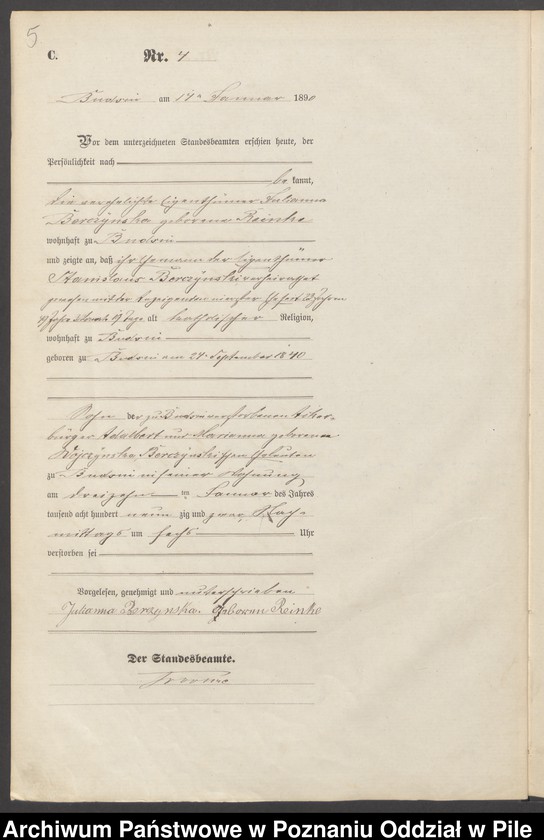 5
C.
Nr. 4
Budsin am 14ten Januar 1890
Vor dem unterzeichneten Standesbeamten erschien heute, der
Persönlichkeit nach
be kannt,
die verehelichte Eigenthümer Julianna
Berczynska geborene Reinke
wohnhaft zu Budsin
und zeigte an, daß ihr Ehemann der Eigenthümer
Stanislaus Berczynski verheirathet
gewesen mit der Anzeigenden
49 Jahre alt katholischer Religion,
wohnhaft zu Budsin
geboren zu Budsin am 24. September 1840
Sohn der zu Budsin verstorbenen Acker-
bürger Adalbert und Marianna geborene
Berczynskischen Eheleuten
zu Budsin in seiner Wohnung
am dreizehn ten Januar des Jahres
tausend acht hundert neun zig und zwar Nach-
mittags um sechs Uhr
verstorben sei
Vorgelesen, genehmigt und unterschrieben
Julianna Berczynska. geborene Reinke
Der Standesbeamte.
Archiwum Państwowe w Poznaniu Oddział w Pile